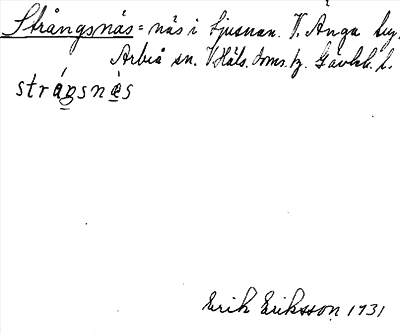 Strångsnäs = näs i Ljusnan. V. Änga by,
Arbrå sn. V Häls. doms. tg. Gävleb. l.
stráŋsnὲs
Erik Eriksson 1931